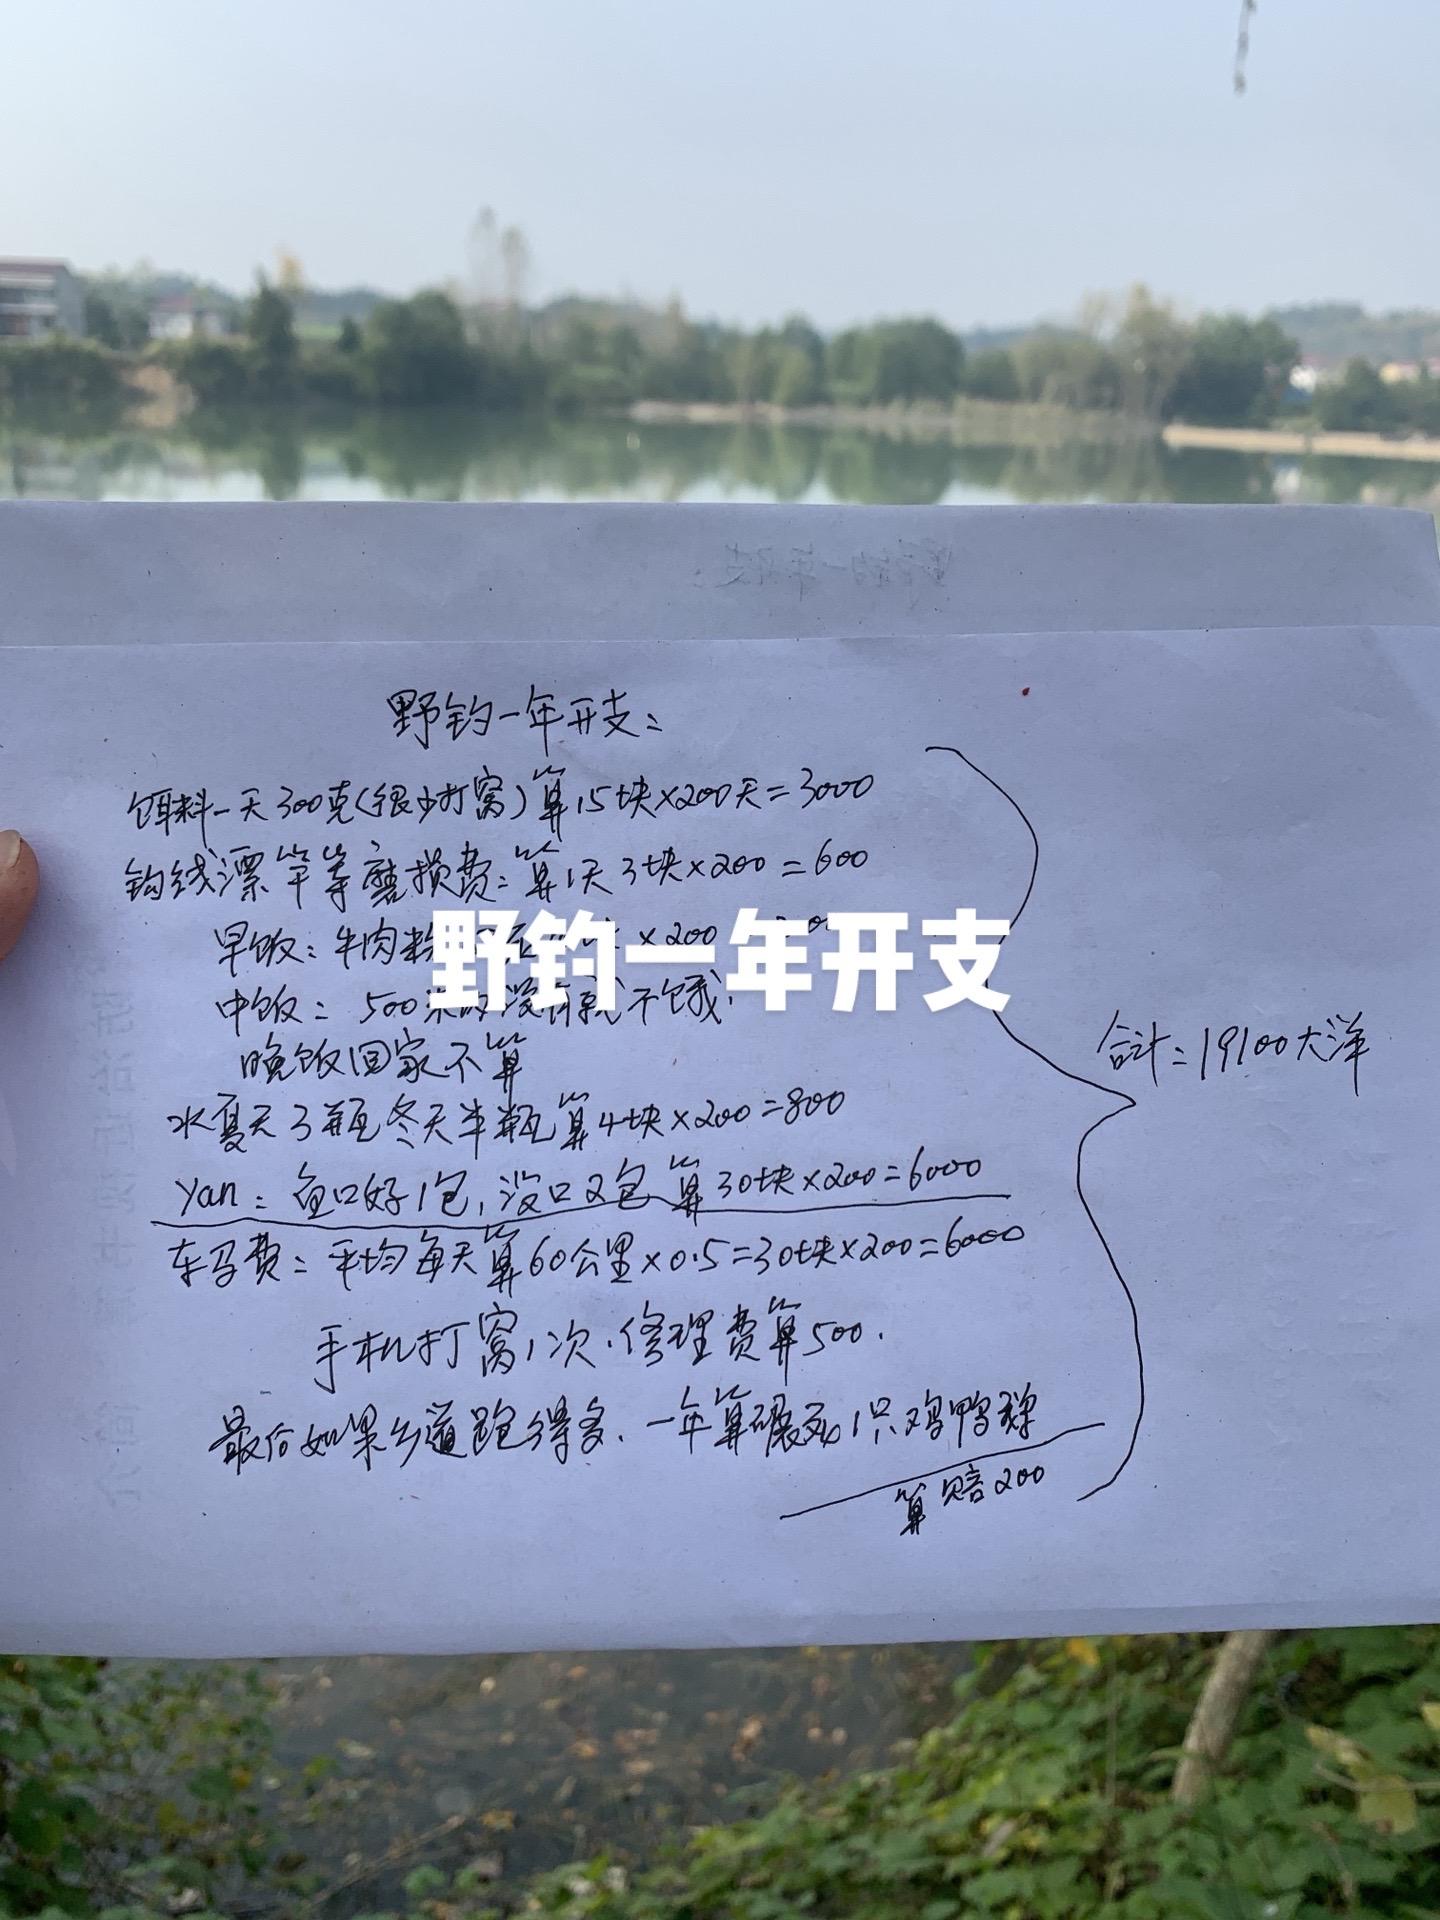 野钓一年开支:
饵料一天300克(很少打窝)算15块×200天=3000
钩线漂竿等磨损费:算1天3块×200=600
早饭:牛肉粉 ×200
野钓一年开支
中饭: 500米内没有就不饿.
晚饭回家不算
水夏天3瓶冬天半瓶算4块×200=800
yan:鱼口好1包,没口2包 算30块×200=6000
车马费:平均每天算60公里×0.5=30块×200=6000
手机打窝1次.修理费算500.
最后如果乡道跑得多.一年算碾死1只鸡鸭鹅
算赔200
合计:19100大洋